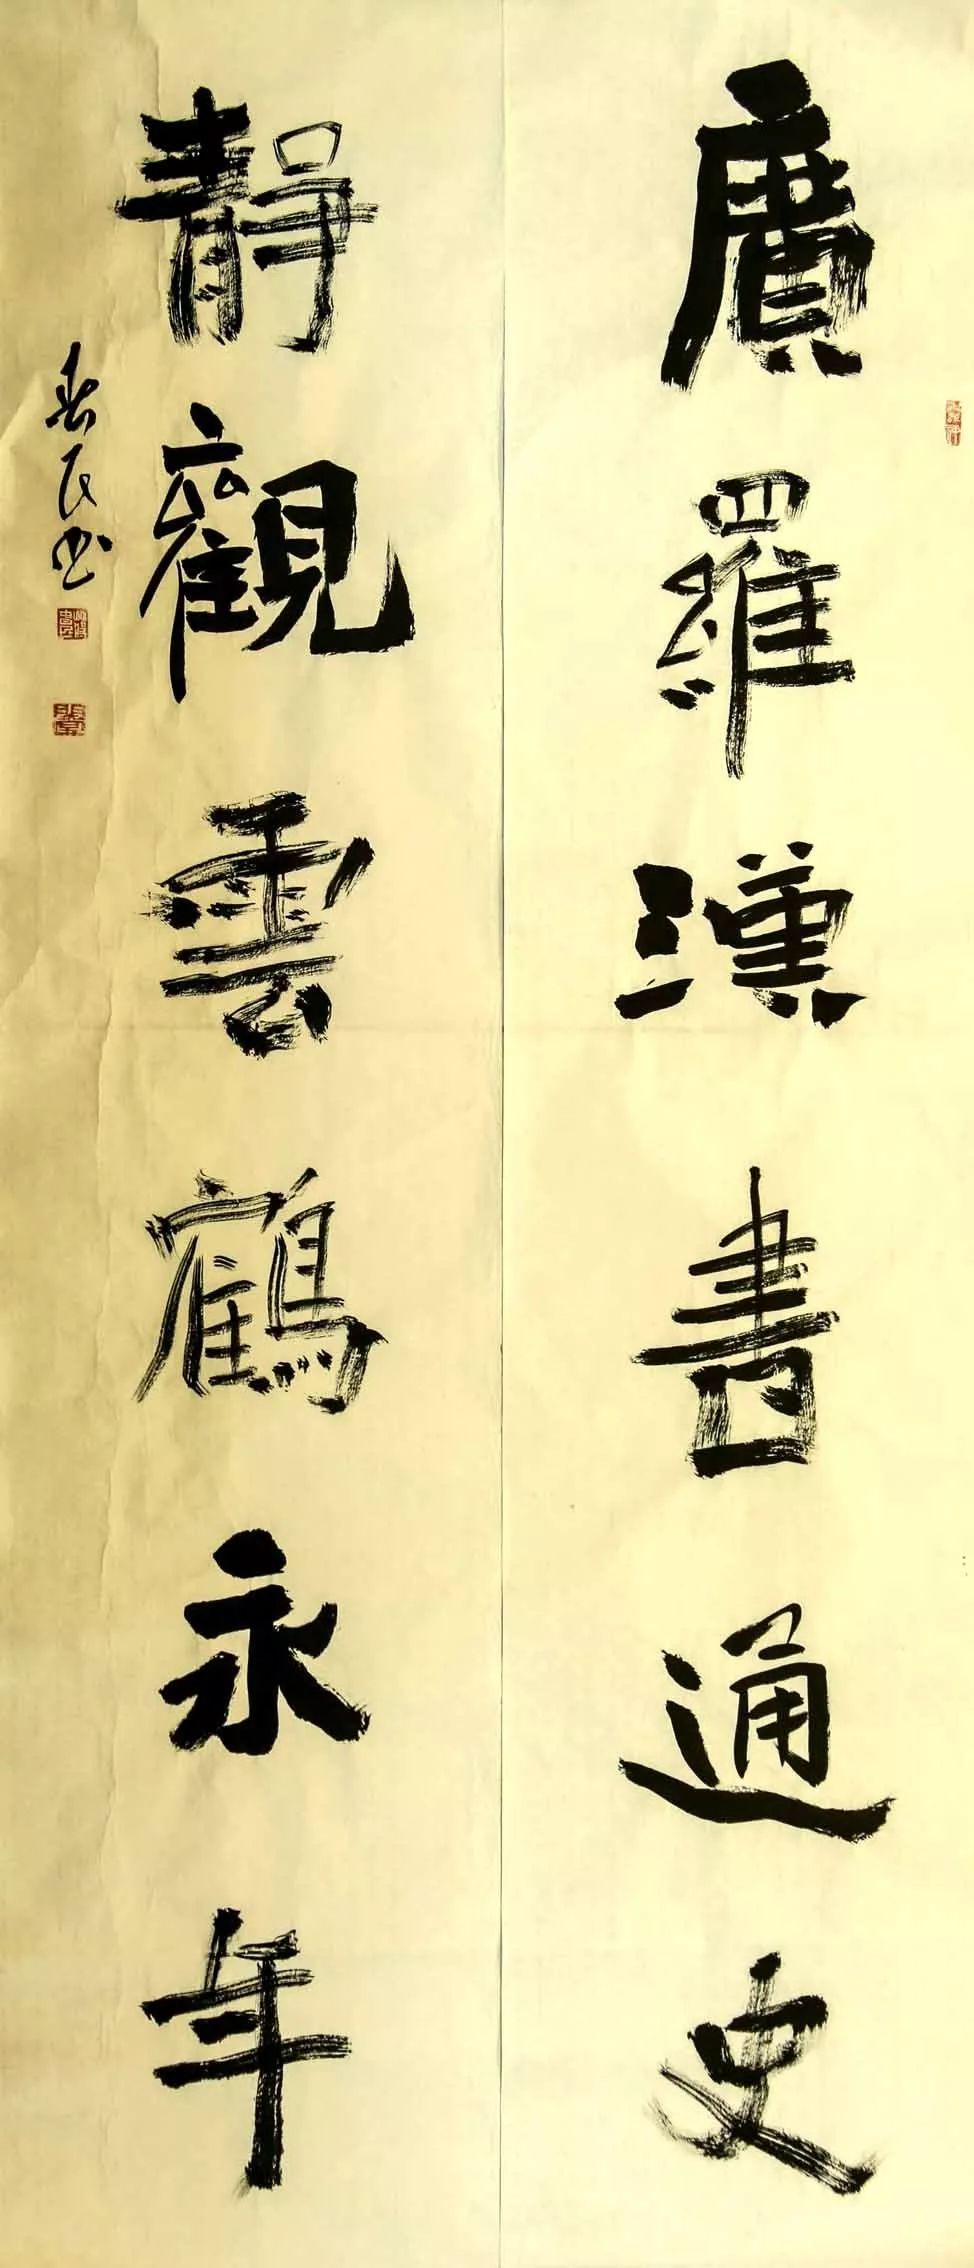 廣羅漢書通史
靜觀雲鶴永年
春民书